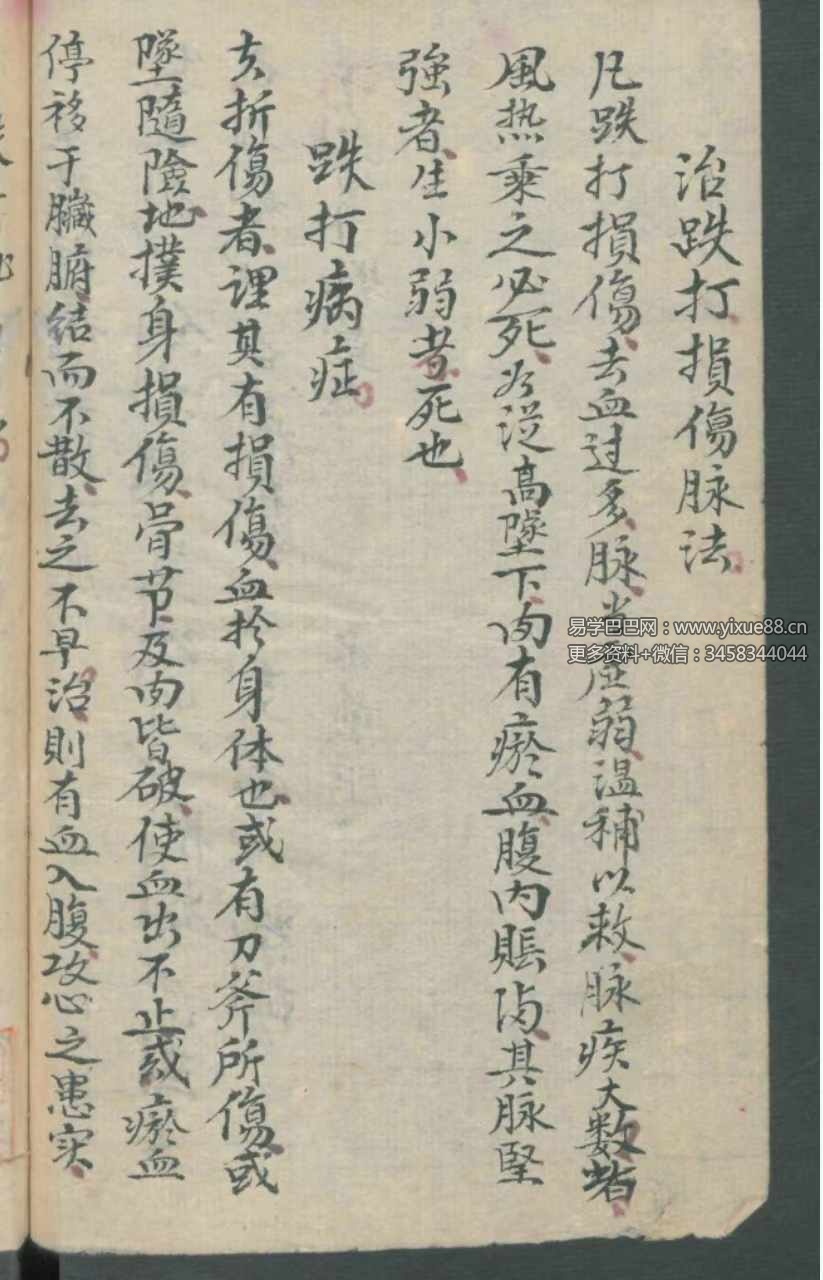 治跌打損傷脉法
凡跌打損傷去血过多脉当虚弱温補以救脉疾大数者
風热乘之必死若從高墜下内有瘀血腹内賬滿其脉堅
強者生小弱者死也
跌打病症
夫折傷者謂其有損傷血於身体也或有刀斧所傷或
墜隨險地撲身損傷骨节及内皆破使血出不止或瘀血
停移于臟腑结而不散去之不早治則有血入腹攻心之患实
易学巴巴网：www.yixue88.cn
更多资料+微信：3458344044